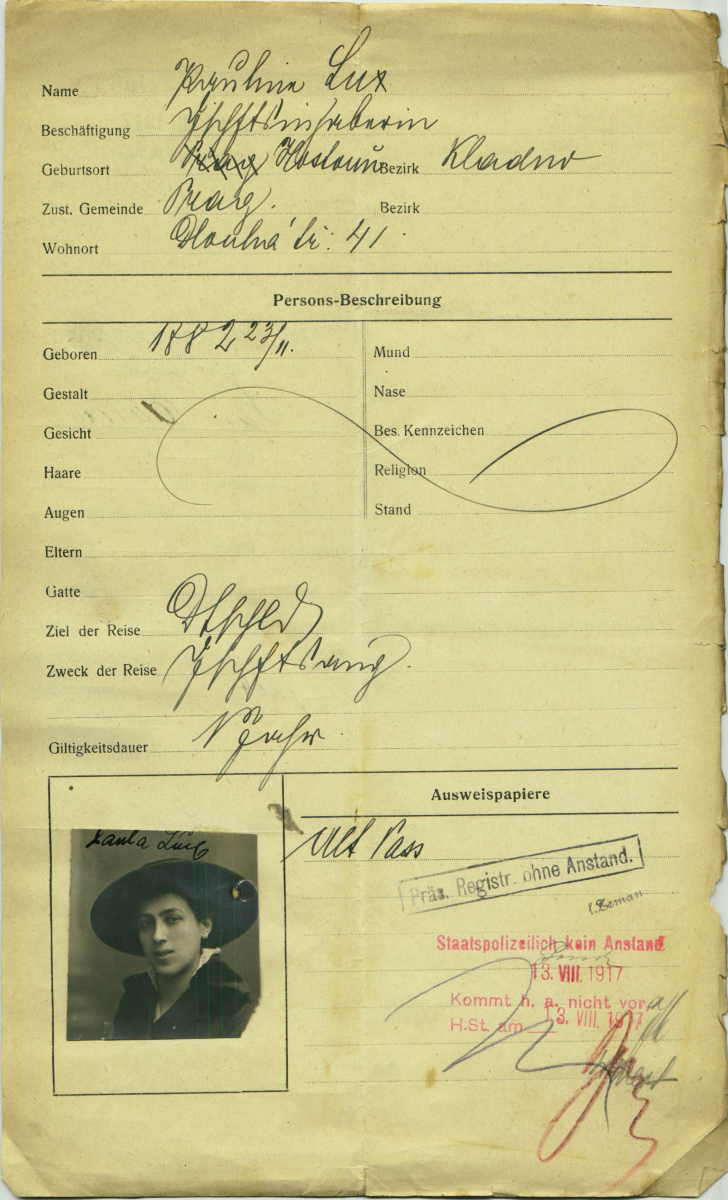 Name Pauline Lux
Beschäftigung Gschftsinhaberin
Geburtsort Prag Hostouň Bezirk Kladno
Zust. Gemeinde Prag. Bezirk
Wohnort Dlouhá tř. 41
Persons-Beschreibung
Geboren 1882 23/11. Mund
Gestalt Nase
Gesicht Bes. Kennzeichen
Haare Religion
Augen Stand
Eltern
Gatte
Ziel der Reise Dtschld
Zweck der Reise
Giltigkeitsdauer 1 Jahr
Ausweispapiere
Paula Lux
Alt Pass
Präs. Registr. ohne Anstand.
Zeman
Staatspolizeilich kein Anstand
13. VIII. 1917
Kommt h. a. nicht vor.
H.St. am 13. VIII. 1917